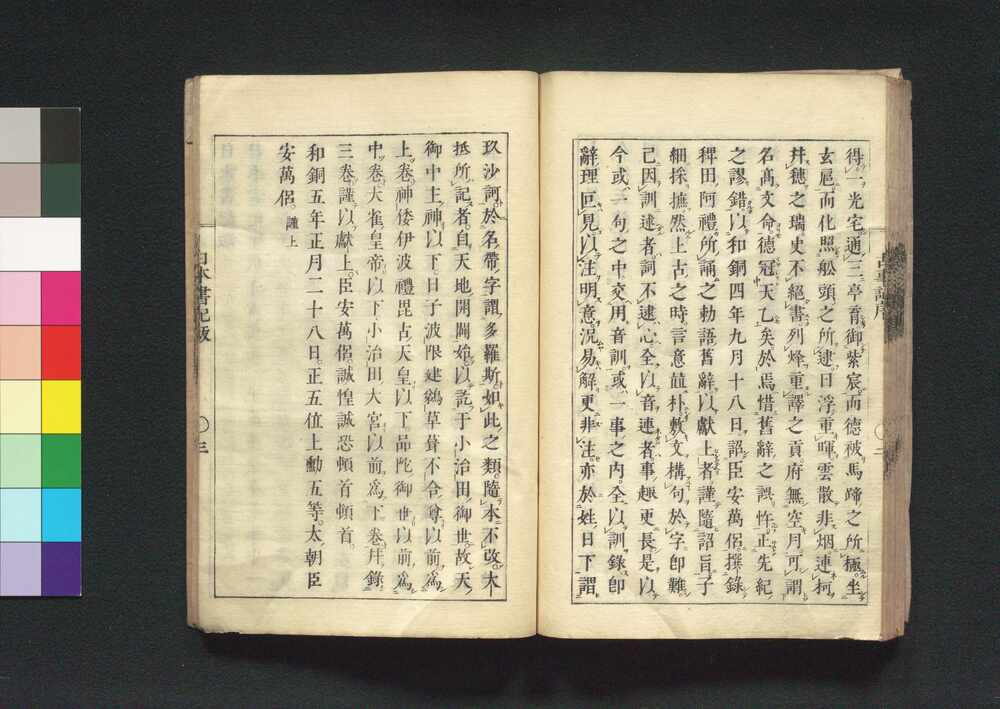 得一光宅通三亭育御紫宸而德被馬蹄之所極坐
玄扈而化照船頭之所逮日浮重暉雲散非烟連柯
幷穗之瑞史不絕書列烽重譯之貢府無空月可謂
名高文命德冠天乙矣於焉惜舊辭之誤忤正先紀
之謬錯以和銅四年九月十八日詔臣安萬侶撰錄
稗田阿禮所誦之勅語舊辭以獻上者謹隨詔旨子
細採摭然上古之時言意並朴敷文構句於字即難
已因訓述者詞不逮心全以音連者事趣更長是以
今或一句之中交用音訓或一事之內全以訓錄即
辭理叵見以注明意況易解更非注亦於姓日下謂
玖沙訶於名帶字謂多羅斯如此之類隨本不改大
抵所記者自天地開闢始以訖于小治田御世故天
御中主神以下日子波限建鵜草葺不合尊以前爲
上卷神倭伊波禮毘古天皇以下品陀御世以前爲
中卷大雀皇帝以下小治田大宮以前爲下卷幷錄
三卷謹以獻上臣安萬侶誠惶誠恐頓首頓首
和銅五年正月二十八日正五位上勳五等太朝臣
安萬侶 謹上